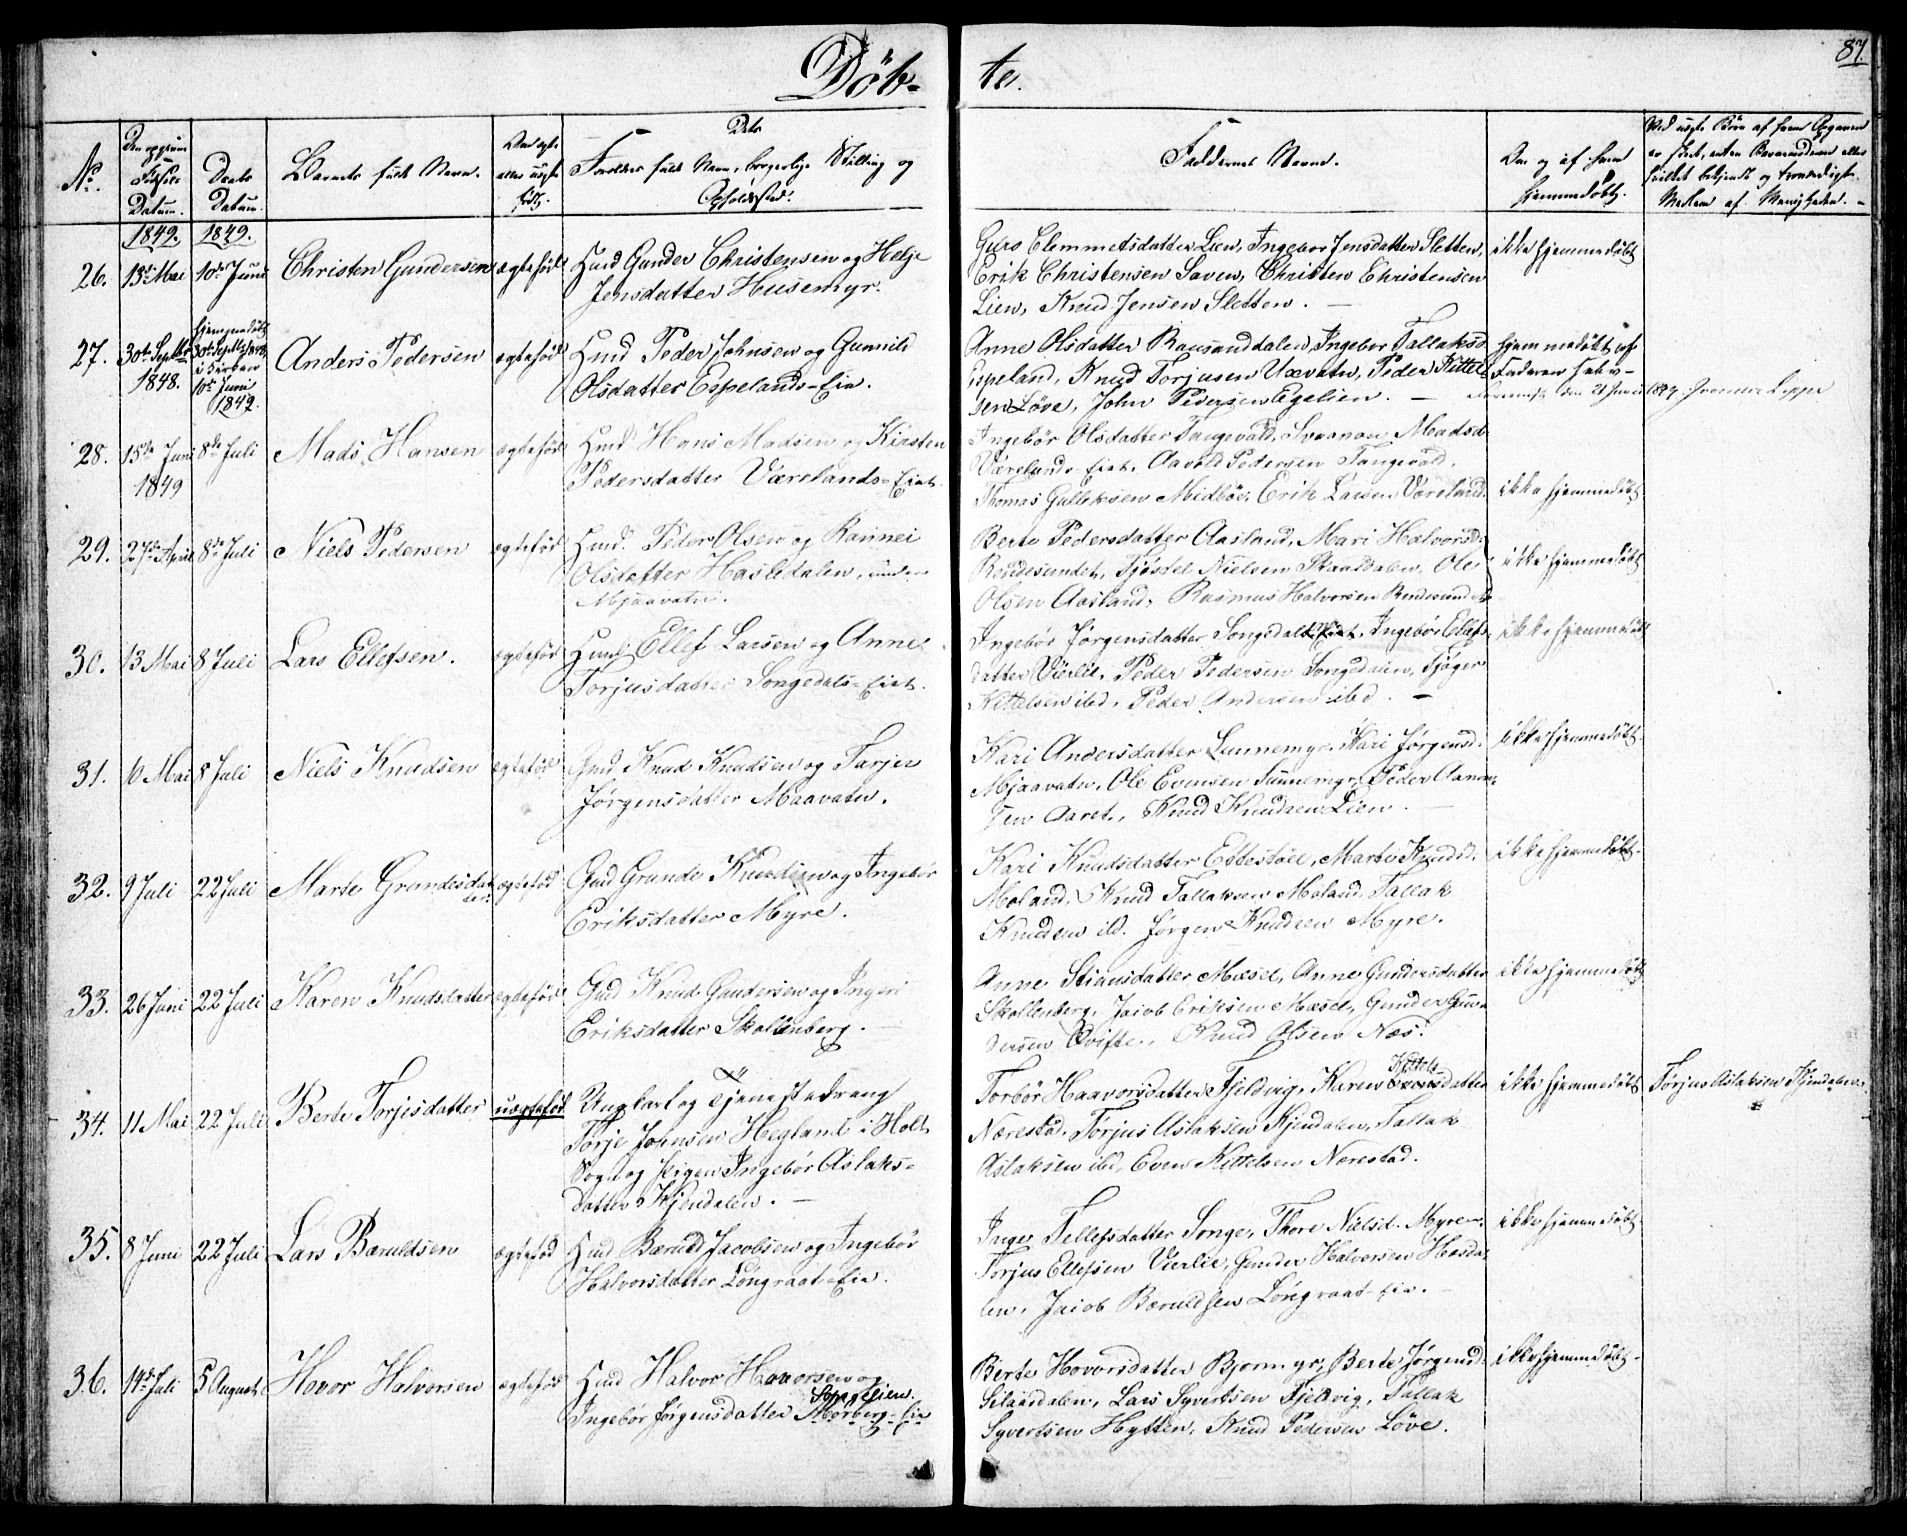 Döb-
te.
87.
No.
Den opgivne Fødsels Datum.
Deabs Datum.
Barnets fulde Navn.
Om ægte eller uægte født.
Dets
Forældres fulde Navn, borgerlige Stilling og
Opholdssted.
Faddernes Navne.
Om og af hvem
hjemmedøbt.
Ved uægte Børn af hvem Opgaven
er skeet, enten Barnemoderen eller
hvilket bekjendt og troværdigt
Medlem af Menigheden.
1849.
1849.
26.
13de Mai
10de Juni
Christen Gundersen
ægtefød
Hmd Gunder Christensen og Helje
Jensdatter Husemyr.
Guro Clemmetsdatter Lien, Ingebor Jensdatter Sletten,
Erik Christensen Saven, Christen Christensen
Lien, Knud Jensen Sletten.
ikke hjemmedøbt
27.
30te Septbr
1848.
hjemmedøbt
30te Septbr 1848
i Kirken
10de Juni
1849.
Anders Pedersen
ægtefød
Hmd Peder Johnsen og Gunnild
Olsdatter Espelands-Eie.
Anne Olsdatter Ransanddalen, Ingebor Tallaksd.
Espeland, Knud Torjusen Uxvatn, Peder Kittel-
sen Løve, John Pedersen Egelien.
hjemmedøbt af
Faderen selv
den 21 Juni 1849.
28.
15de Juni
1849
8de Juli
Mads Hansen
ægtefød
Hmd Hans Madsen og Kirsten
Pedersdatter Værelands-Eiet.
Ingebør Olsdatter Tangevald, Madsd.
Værelands-Eiet, Aavold Pedersen Tangevald,
Thomas Gulleksen Midbøe, Erik Larsen Væreland.
ikke hjemmedøbt
29.
27de April
8de Juli
Niels Pedersen
ægtefød
Hmd. Peder Olsen og Rannei
Olsdatter Hasledalen, under
Mjaavatn.
Berte Pedersdatter Aasland, Mari Halvorsd.
Rendesundet, Tjøstel Nielsen Skaasdalen, Ole
Olsen Aasland, Rasmus Halvorsen Rendesundet
ikke hjemmedøbt
30.
13 Mai
8 Juli
Lars Ellefsen.
ægtefød
Hmd Ellef Larsen og Anne
Torjusdatter Songedals-Eiet.
Ingebør Jørgensdatter Songedals Eiet, Ingebør Ellefs-
datter Vierlie, Peder Pedersen Songedalen, Tjøger
Kittelsen ibd, Peder Andersen ibd.
ikke hjemmedøbt
31.
6 Mai
8 Juli
Niels Knudsen
ægtefød
Gmd Knud Knudsen og Tarjer
Jørgensdatter Maavatn.
Kari Andersdatter Sunnemyr, Kari Jørgensd.
Mjaavatn, Ole Evensen Sunnemyr, Peder Aanon-
sen Aaret, Knud Knudsen Lien.
ikke hjemmedøbt
32.
9 Juli
22 Juli
Marte Grundesdat-
ter
ægtefød
Gmd Grunde Knudsen og Ingebor
Eriksdatter Myre.
Kari Knudsdatter Ettestøel, Marte Knudsd.
Moland, Knud Tallaksen Moland, Tallak
Knudsen ibd. Jørgen Knudsen Myre.
ikke hjemmedøbt
33.
26 Juni
22 Juli
Karen Knudsdatter
ægtefød
Gmd Knud Gundersen og Ingeri
Eriksdatter Skollenberg.
Anne Stiansdatter Mæsel, Anne Gundersdatter
Skollenberg, Jacob Eriksen Mæsel, Gunder Gun-
dersen Qvifte, Knud Olsen Næs.
ikke hjemmedøbt
34.
11 Mai
22 Juli
Berte Torjisdatter
uægtefød
Ungkarl og Tjenestedreng
Torje Johnsen Hegland i Holt
Sogn og Pigen Ingebør Aslaks-
datter Kjendalen.
Torbør Haavorsdatter Fjeldvig, Karen Kittels
datter
Nærestad, Torjus Aslaksen Kjendalen, Tallak
Aslaksen ibd, Even Kittelsen Nærestad.
ikke hjemmedøbt
Torjus Aslaksen Kjendalen.
35.
8 Juni
22 Juli
Lars Bæruldsen
ægtefød
Hmd Bæruld Jacobsen og Ingebør
Halvorsdatter Longraat-Eie.
Inger Tellefsdatter Songe, Thore Nielsd. Myren,
Torjus Ellefsen Vierlie, Gunder Halvorsen Hasda-
len, Jacob Bæruldsen Longraat-Eie.
ikke hjemmedøbt
36.
14de Juli
5 August
Hovor Halvorsen
ægtefød
Hmd Halvor Hovorsen og
Songelien.
Ingebør Jørgensdatter Mørberg-Eie
Berte Hovorsdatter Bjormyr, Berte Jørgensd.
Selaasdalen, Lars Syvertsen Fjeldvig, Tallak
Syvertsen Hytten, Knud Pedersen Løve.
ikke hjemmedøbt